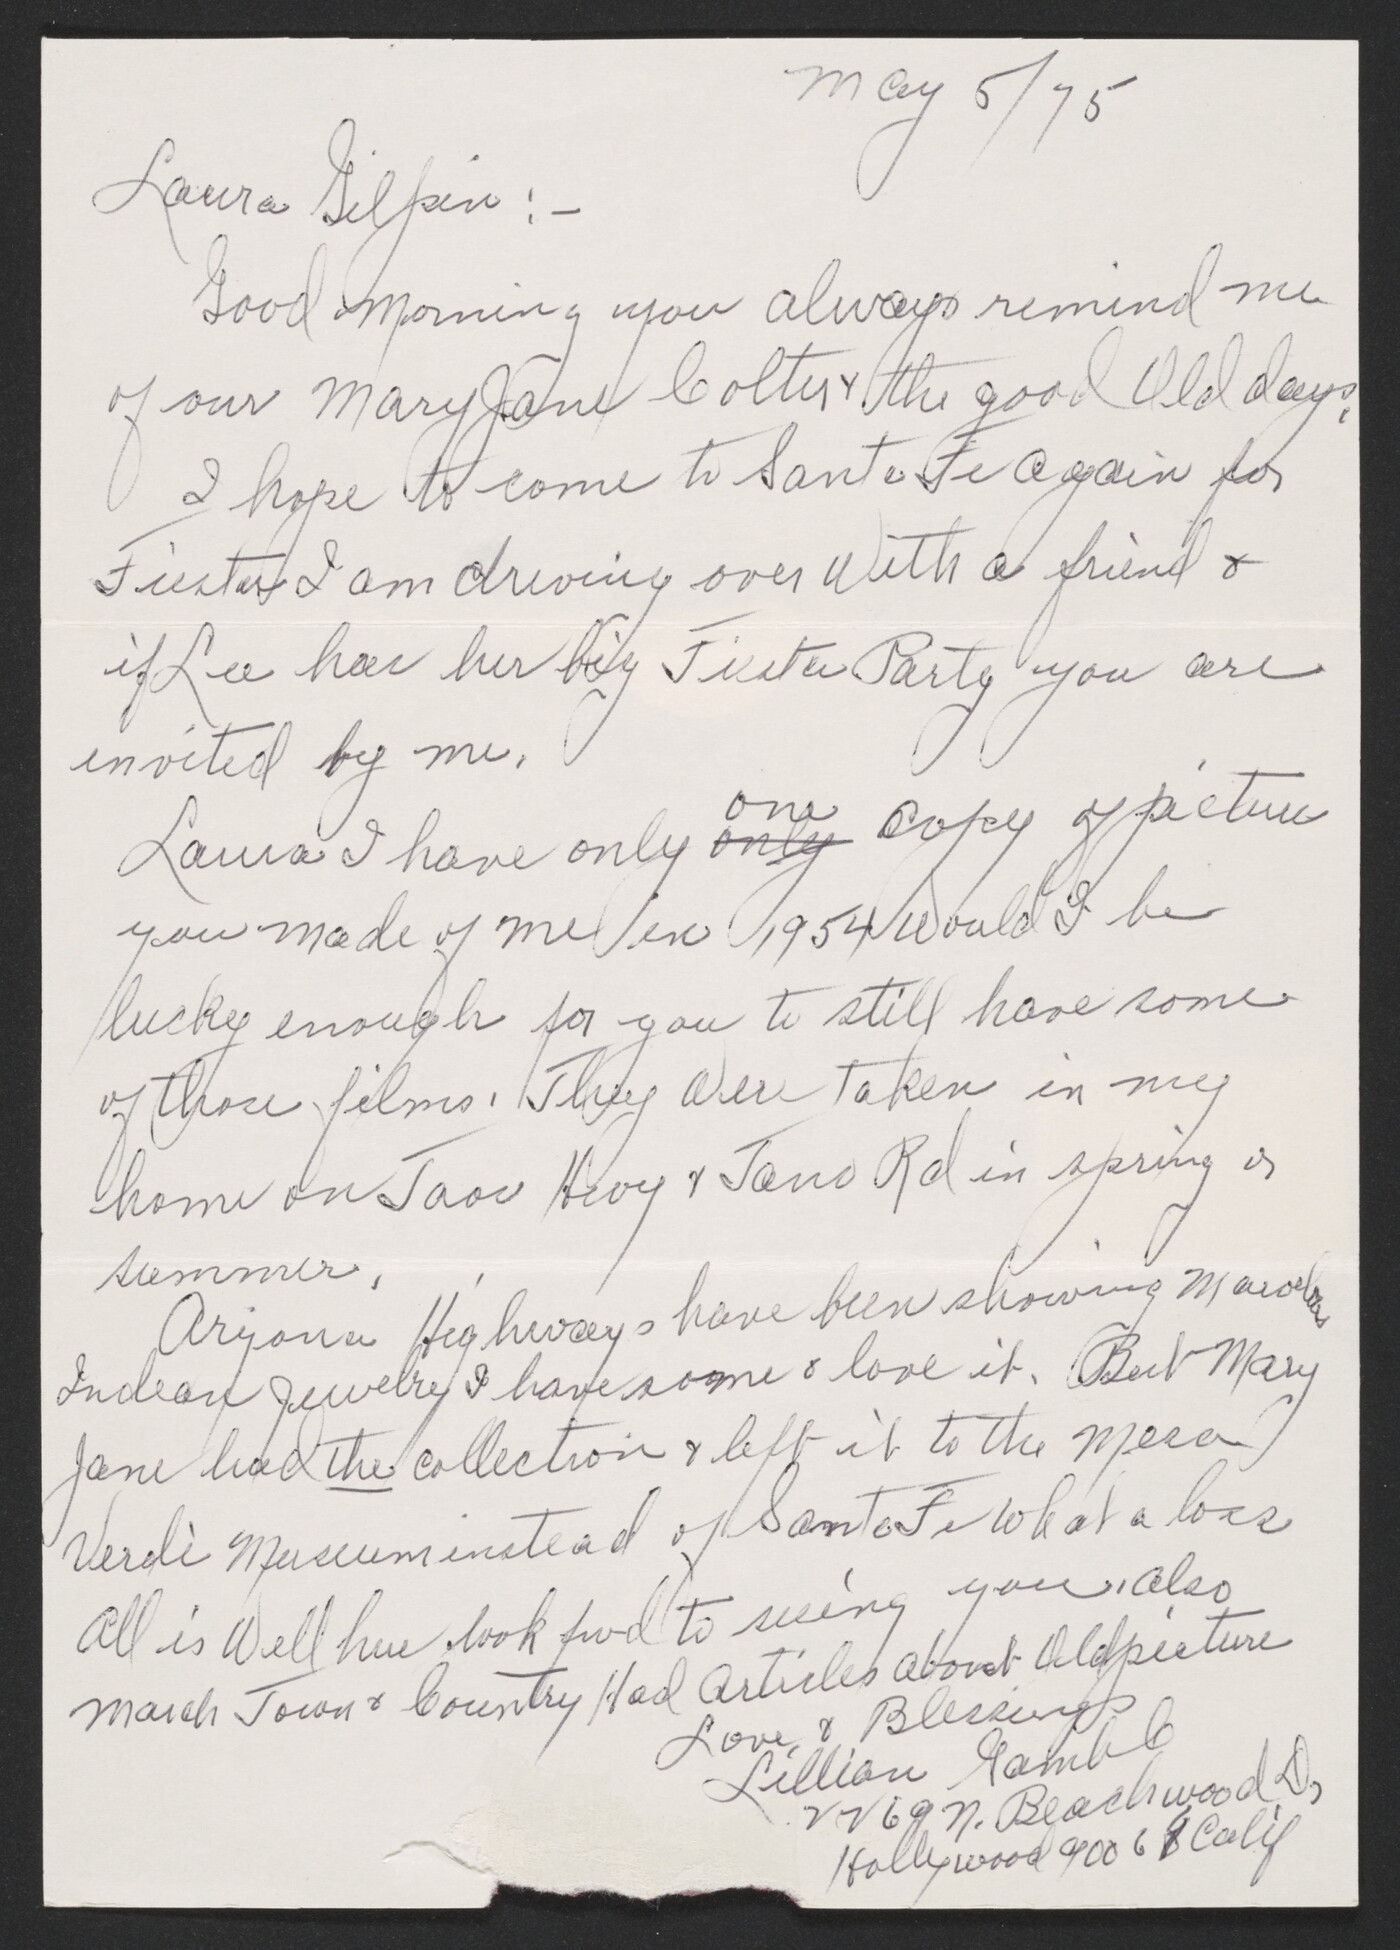 May 5/75
Laura Gilpin:-
Good Morning you always remind me
of our Mary Jane Colter & the good Old days.
I hope to come to Santa Fe again for
Fiesta, I am driving over with a friend &
if Lee has her big Fiesta Party you are
invited by me.
Laura I have only only one copy of picture
you made of me in 1954 Would I be
lucky enough for you to still have some
of those films. They were taken in my
home on Taos Hwy & Tano Rd in spring or
summer.
Arizona Highways have been showing
Indean Jewelry I have some & love it. But Mary
Jane had the collection & left it to the Mesa
Verdi Museum instead of Santa Fe What a loss
All is Well here look fwd to seeing you. also
March Town & Country Had Articles about Old picture
Love & Blessings
Lillian
2269 N. Beachwood Dr
Hollywood 90068 Calif